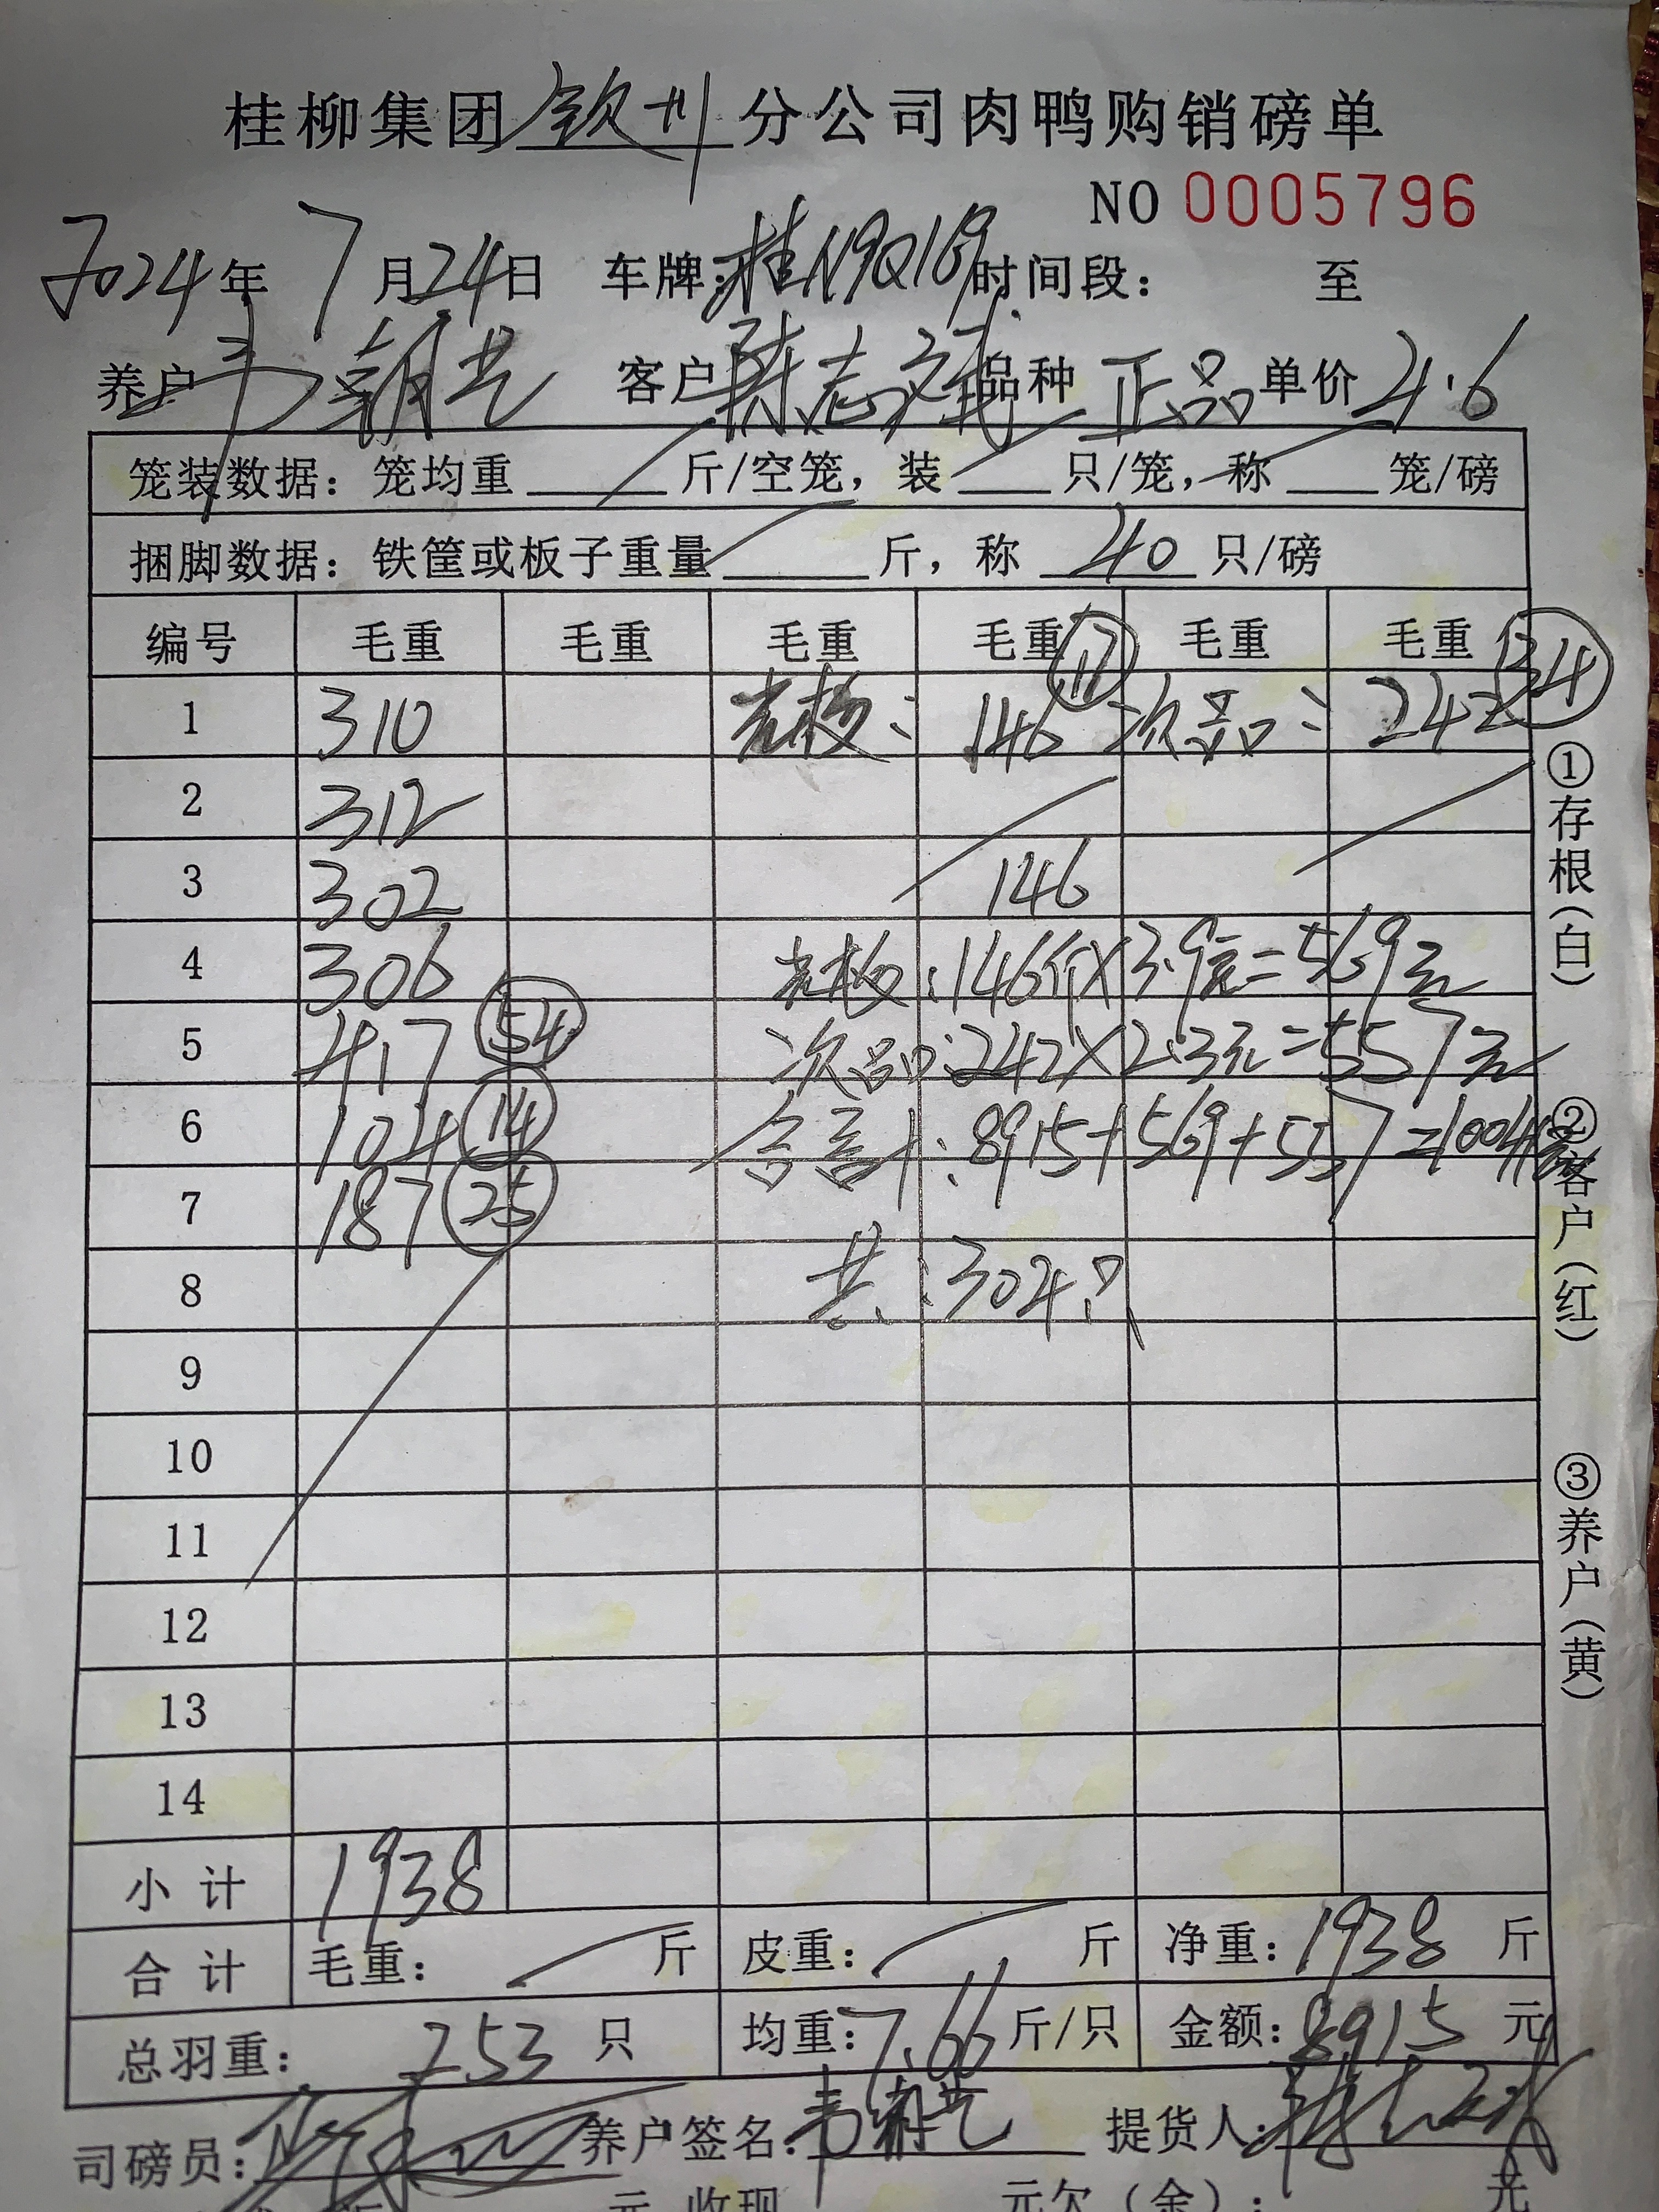 桂柳集团钦州分公司肉鸭购销磅单
NO 0005796
2024年 7月24日 车牌:桂N9Q169 时间段: 至
养户 韦朝艺 客户 陈志斌 品种 正品 单价 4.6
笼装数据: 笼均重 斤/空笼, 装 只/笼, 称 笼/磅
捆脚数据: 铁筐或板子重量 斤, 称 40 只/磅
编号 毛重 毛重 毛重 毛重 17 毛重 毛重 34
1 310 光板: 146 次品: 242
2 312
3 302 146
4 306 光板:146斤×3.9元=569元
5 417 54 次品:242×2.3元=557元
6 104 14 合计:8915+569+557=10041
7 187 25
8 共:304只
9
10
11
12
13
14
小计 1938
合计 毛重: 斤 皮重: 斤 净重: 1938 斤
总羽重: 253 只 均重: 7.66 斤/只 金额: 8915 元
司磅员: 养户签名: 韦朝艺 提货人: 陈志斌
元 收现 元欠(金): 元
①存根(白)
②客户(红)
③养户(黄)